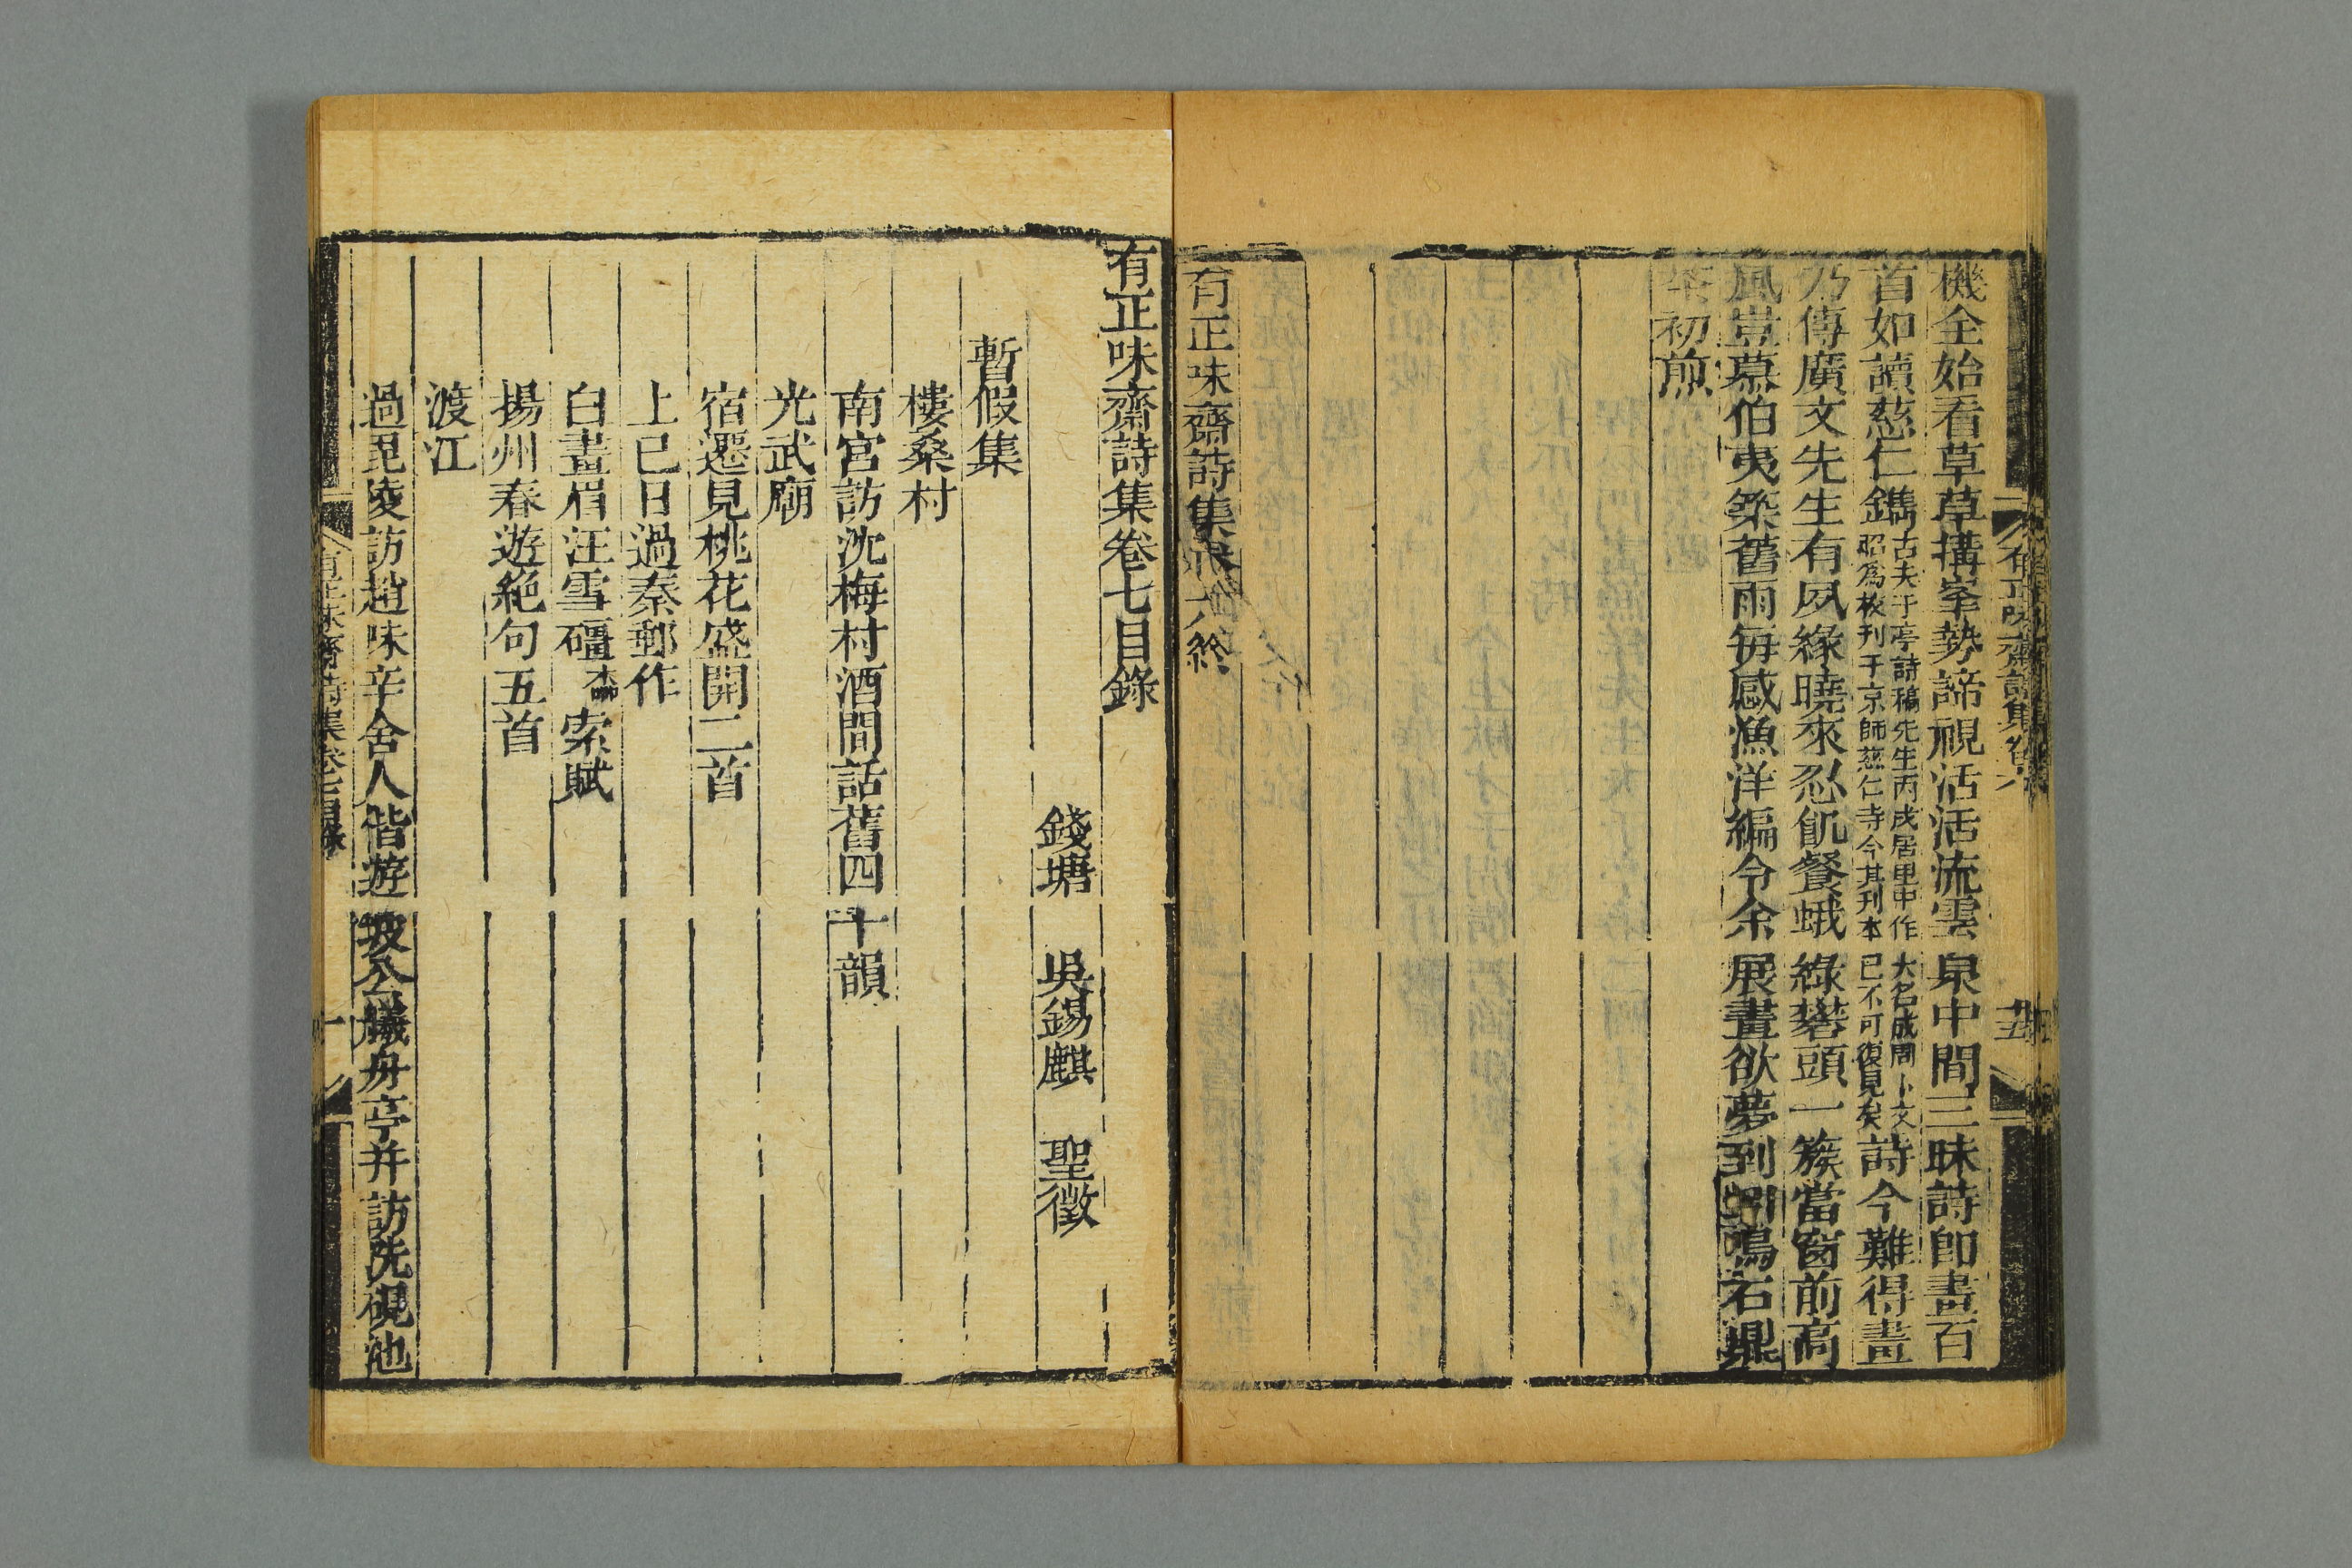 機全始看草草搆峯勢諦視活活流雲泉中間三昧詩卽畫百
首如讀慈仁鐫
古夫于亭詩稿先生丙戌居里中作大名成周卜文
昭爲校刊于京師慈仁寺今其刊本已不可復見矣
詩今難得畫
乃傳廣文先生有夙緣曉來忍飢餐蛾綠礬頭一簇當窗前高
風豈慕伯夷築舊雨每感漁洋編令余展畫欲夢到鳴石鼎
茶初煎
有正味齋詩集卷六終
有正味齋詩集卷六
十五
有正味齋詩集卷七目錄
錢塘 吳錫麒 聖徵
暫假集
樓桑村
南宮訪沈梅村酒間話舊四十韻
光武廟
宿遷見桃花盛開二首
上巳日過秦郵作
白畫眉汪雪礓索賦
揚州春遊絕句五首
渡江
過毘陵訪趙味辛舍人偕遊坡公艤舟亭并訪洗硯池
有正味齋詩集卷七目錄
一